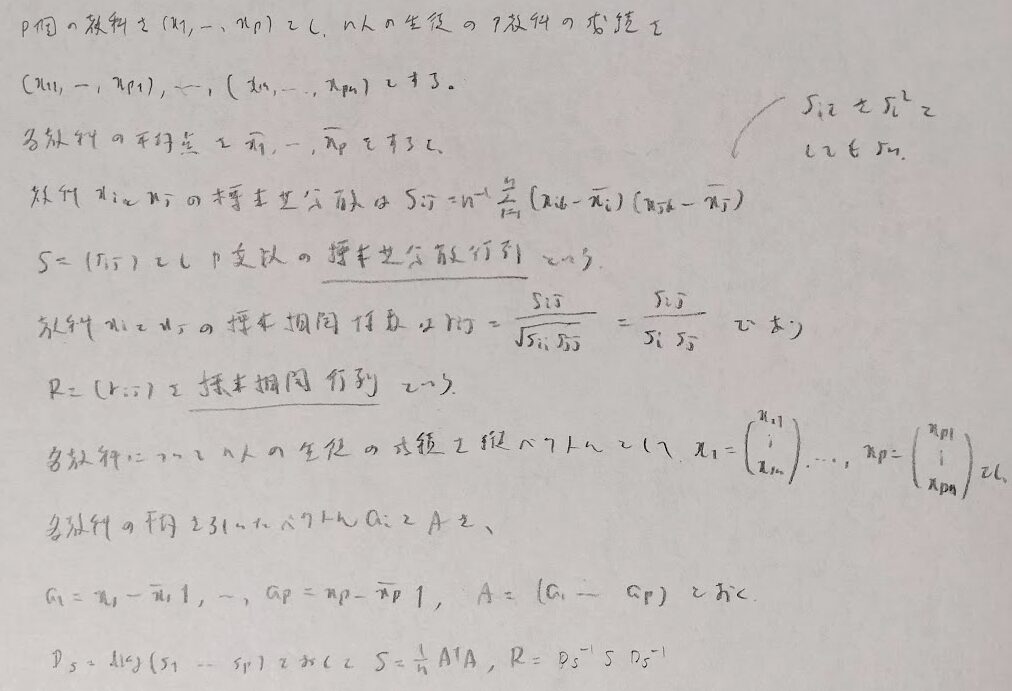 p個の教科を(x1,…,xp)とし、n人の生徒のp教科の成績を
(x11,…,xp1),…,(x1n,…,xpn)とする。
各教科の平均点を x̄1,…,x̄p とすると、
sii を si² と
教科 xi と xj の標本共分散は Sij = n⁻¹ Σ (xik - x̄i)(xjk - x̄j)
S = (sij) とし p変数の標本共分散行列という.
教科 xi と xj の標本相関係数は rij = sij/√(sii sjj) = sij/(si sj) であり
R = (rij) を標本相関行列という.
各教科についてn人の生徒の成績を縦ベクトルとして x1 = (x11 ⋮ x1n), …, xp = (xp1 ⋮ xpn) とし、
各教科の平均を引いたベクトル ai と A を、
a1 = x1 - x̄1 1, …, ap = xp - x̄p 1, A = (a1 … ap) とおく.
Ds = diag(s1 … sp) とおくと S = 1/n A'A, R = Ds⁻¹ S Ds⁻¹